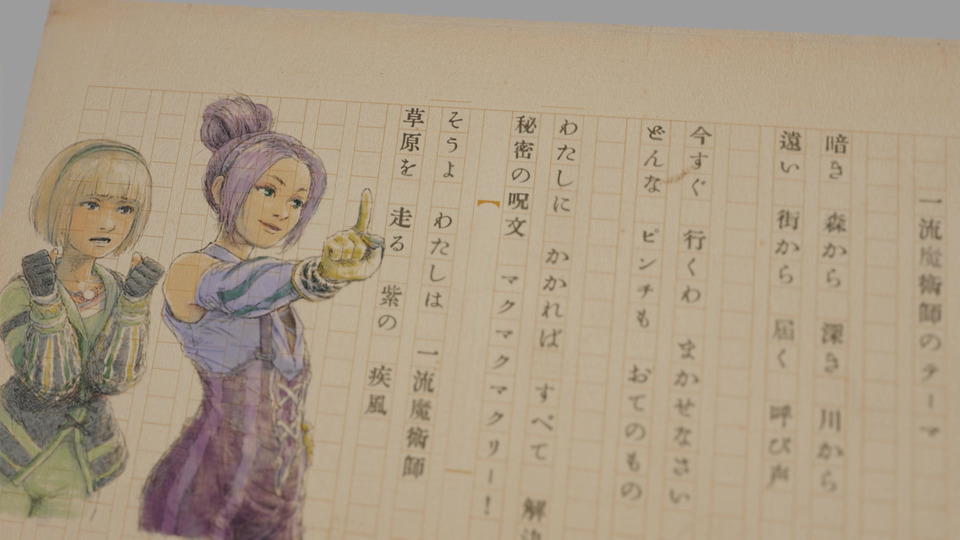 一流魔術師のテーマ
暗き 森から 深き 川から
遠い 街から 届く 呼び声
今すぐ 行くわ まかせなさい
どんな ピンチも おてのもの
わたしに かかれば すべて 解
秘密の呪文 マクマクマクリー！
そうよ わたしは 一流魔術師
草原を 走る 紫の 疾風